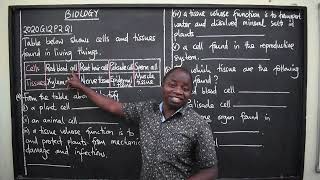 BIOLOGY
2020G12P2Q1
Table below shows cells and tissues
found in living things.
Cells Red blood cell Root hair cell Palisade cell Sperm cell
Tissues Xylem Nerve tissue Epidermal tissue Muscle tissue
from the table
a plant cell
ii) an animal cell
a tissue whose function is to
and protect plants from mechanical
damage and infections.
(iv) a tissue whose function is to transport
water and dissolved mineral salts in
plants.
v) a cell found in the reproductive
system.
which tissue are the following
found?
blood cell
Palisade cell
one organ found in